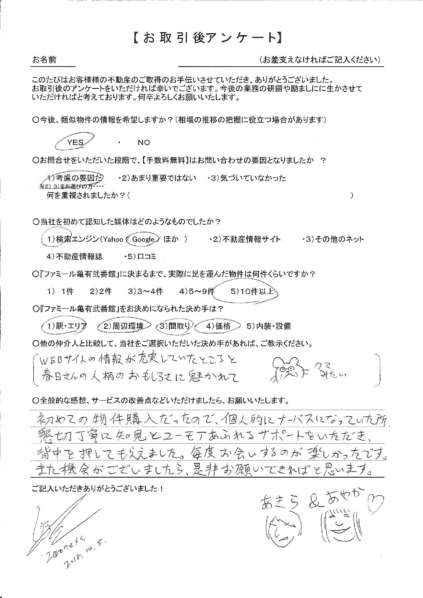 【お取引後アンケート】
お名前 (お差支えなければご記入ください)
このたびはお客様様の不動産のご取得のお手伝いさせていただき、ありがとうございました。
お取引後のアンケートをいただければ幸いでございます。今後の業務の研鑽や励ましに生かさせて
いただければと考えております。何卒よろしくお願いいたします。
○今後、類似物件の情報を希望しますか？(相場の推移の把握に役立つ場合があります)
YES ・ NO
○お問合せをいただいた段階で、【手数料無料】はお問い合わせの要因となりましたか ？
・1)考慮の要因だ ・2)あまり重要ではない ・3)気づいていなかった
何を重視されましたか？( )
○当社を初めて認知した媒体はどのようなものでしたか？
・1)検索エンジン(Yahoo / Google / ほか ) ・2)不動産情報サイト ・3)その他のネット
・4)不動産情報誌 ・5)口コミ
○『ファミール亀有弐番館』に決まるまで、実際に足を運んだ物件は何件くらいですか？
1) 1件 2)2件 3)3～4件 4)5～9件 5)10件以上
○『ファミール亀有弐番館』をお決めになられた決め手は？
1)駅・エリア 2)周辺環境 3)間取り 4)価格 5)内装・設備
○他の仲介人と比較して、当社をご選択いただいた決め手があれば、ご教示ください。
WEBサイトの情報が充実していたところと
春日さんの人柄のおもしろさに魅かれて
クマみたい
○全般的な感想、サービスの改善点などいただけましたら、お願いいたします。
初めての物件購入だったので、個人的にナーバスになっていた所
懇切丁寧に知見とユーモアあふれるサポートをいただき、
背中を押してもらえました。毎度お会いするのが楽しかったです。
また機会がございましたら、是非お願いできればと思います。
ご記入いただきありがとうございました！
あきら & あやか♡